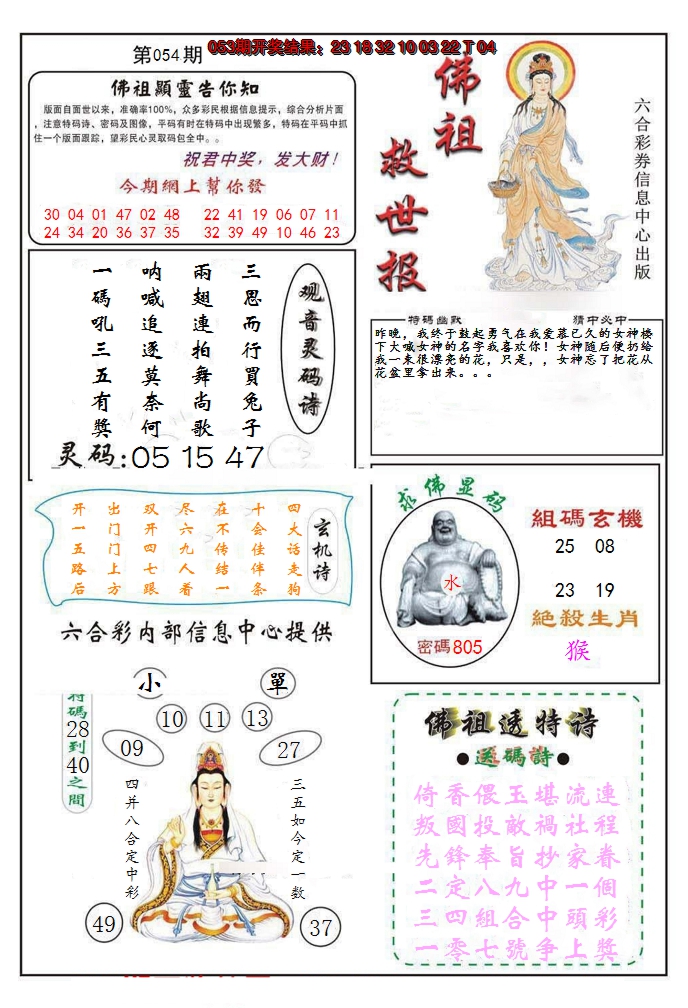 第054期
053期开奖结果：23 18 32 10 03 22 T 04
佛祖顯靈告你知
版面自面世以来，准确率100%，众多彩民根据信息提示，综合分析片面
，注意特码诗、密码及图像，平码有时在特码中出现繁多，特码在平码中抓
住一个版面跟踪，望彩民心灵取码包全中。。
祝君中奖，发大财！
今期網上幫你發
30 04 01 47 02 48 22 41 19 06 07 11
24 34 20 36 37 35 32 39 49 10 46 23
佛祖
救世报
六合彩券信息中心出版
三思而行買兔子
兩翅連拍舞尚歌
呐喊追逐莫奈何
一碼吼三五有獎
观音灵码诗
灵码:05 15 47
特碼幽默
猜中必中
昨晚，我终于鼓起勇气在我爱慕已久的女神楼
下大喊女神的名字我喜欢你！女神随后便扔给
我一束很漂亮的花，只是，，女神忘了把花从
花盆里拿出来。。。
玄机诗
四大话走狗
十会佳伴条
在不传结一
尽六九人着
双开四七跟
出门门上方
开一五路后
六合彩内部信息中心提供
求佛显码
水
密碼805
組碼玄機
25 08
23 19
絶殺生肖
猴
小
單
特碼28到40之間
10 11 13
09
27
四并八合定中彩
三五如今定一数
49
37
佛祖透特诗
●送碼詩●
倚香偎玉堪流連
叛國投敵禍社程
先鋒奉旨抄家眷
二定八九中一個
三四組合中頭彩
一零七號争上獎